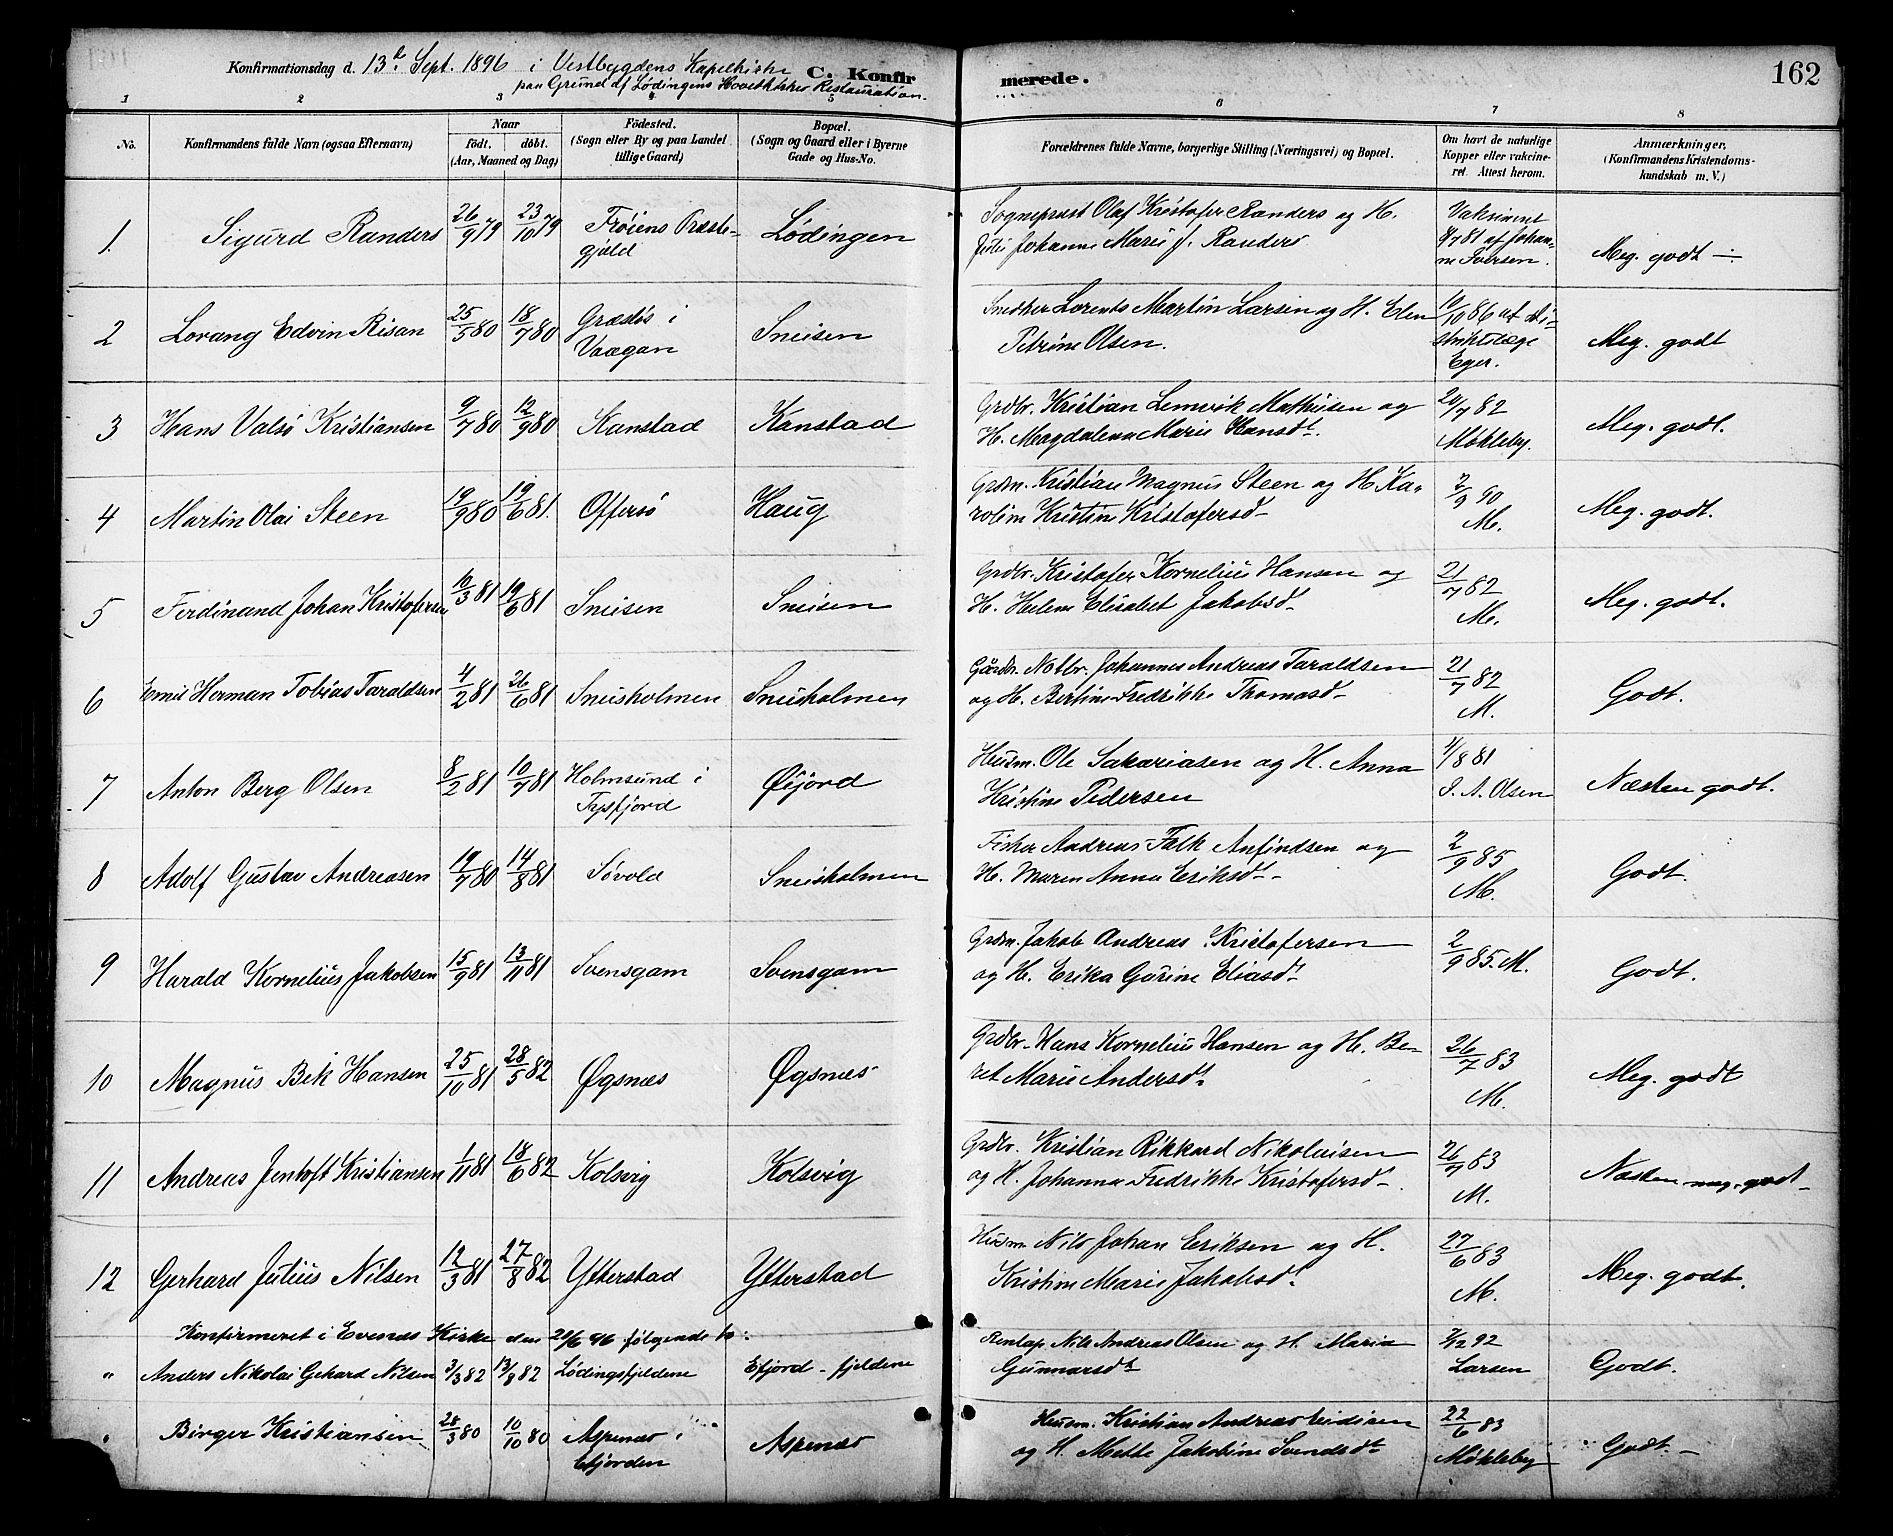 Konfirmationsdag d. 13de Sept. 1896 i Vestbygdens Kapelkirke
paa Grund af Lødingens Hovedkirkes Restauration.
C. Konfirmerede.
162
1 2 3 4 5 6 7 8
No.
Konfirmandens fulde Navn (ogsaa Efternavn)
Naar
födt. döbt.
(Aar, Maaned og Dag)
Födested.
(Sogn eller By og paa Landet
tillige Gaard)
Bopæl.
(Sogn og Gaard eller i Byerne
Gade og Hus-No.
Forældrenes fulde Navne, borgerlige Stilling (Næringsvei) og Bopæl.
Om havt de naturlige
Kopper eller vakcine-
ret. Attest herom.
Anmærkninger.
(Konfirmandens Kristendoms-
kundskab m. V.)
1 Sigurd Randers 26/9 79 23/10 79 Frøiens Præste-
gjæld Lødingen
Sogneprest Olaf Kristofer Randers og H.
Johanne Marie f. Randers
Vaksineret
/7 81 af Johan-
ne Iversen.
Meg. godt —
2 Lorang Edvin Risan 25/5 80 18/7 80
i
Vaagan Sneisen
Snedker Lorents Martin Larsen og H. Elen
Petrine Olsen.
10/10 86 af di-
striktslæge
Eger.
Meg. godt
3 Hans Valsø Kristiansen 9/7 80 12/9 80 Kanstad Kanstad
Grdbr. Kristian Lemvik Mathisen og
H. Magdalena Marie Hansdt.
20/7 82
Møkleby.
Meg. godt.
4 Martin Olai Steen 19/9 80 19/6 81. Offersø Haug
Grdm. Kristian Magnus Steen og H. Ka-
roline Kristine Kristofersd-
2/9 90
M.
Meg. godt.
5 Ferdinand Johan Kristofersen 10/3 81 19/6 81 Sneisen Sneisen
Grdbr. Kristofer Kornelius Hansen og
H. Helene Elisabet Jakobsdt-
21/7 82
M.
Meg. godt.
6 Emil Herman Tobias Taraldsen 4/2 81 26/6 81 Sneisholmen Sneisholmen
Gårdbr. Notbr. Johannes Andreas Taraldsen
og H. Birtine Fredrikke Thomasdt-
21/7 82
M.
Godt.
7 Anton Berg Olsen 8/2 81 10/7 81 Holmsund i
Tysfjord Øifjord
Husm. Ole Sakariasen og H. Anna
Kristine Pedersen
/8 81
A. Olsen
Næsten godt.
8 Adolf Gustav Andreasen 19/7 80 14/8 81 Søvold Sneisholmen
Fisker Andreas Falk Anfindsen og
H. Maren Anna Eriksdt-
2/9 85
M.
Godt.
9 Harald Kornelius Jakobsen 15/9 81 13/11 81 Svensgam Svensgam
Grdm. Jakob Andreas Kristofersen
og H. Erika Gurine Eliasdt
2/9 85. M.
Godt.
10 Magnus Bek Hansen 25/10 81 28/5 82 Øgsnæs Øgsnæs
Grdbr. Hans Kornelius Hansen og H. Be-
ret Marie Andersdt
26/7 83
M.
Meg. godt
11 Andreas Jentoft Kristiansen 1/11 81 18/6 82 Kolsvig Kolsvig
Grdbr. Kristian Rikkard Nikolaisen
og H. Johanna Fredrikke Kristofersd-
26/7 83
M.
Næsten meg. godt
12 Gerhard Julius Nilsen 12/3 81 27/8 82 Ytterstad Ytterstad
Husm. Nils Johan Eriksen og H.
Kristine Marie Jakobsdt
27/6 83
M.
Meg. godt.
Konfirmeret i Evenæs Kirke den 21/6 96 følgende to:
" Anders Nikolai Gehard Nilsen 3/3 82 13/8 82 Lødingsfjeldene Efjord-fjeldene
Renlap. Nils Andreas Olsen og H. Maria
Gunnarsdt
/12 92
Larsen
Godt.
" Birger Kristiansen 28/3 80 10/10 80 Aspenæs i
Efjorden Aspenæs
Husm. Kristian Andreas
og H. Mette Jakobine Svendsdt
22/6 83
Møkleby
Godt. —